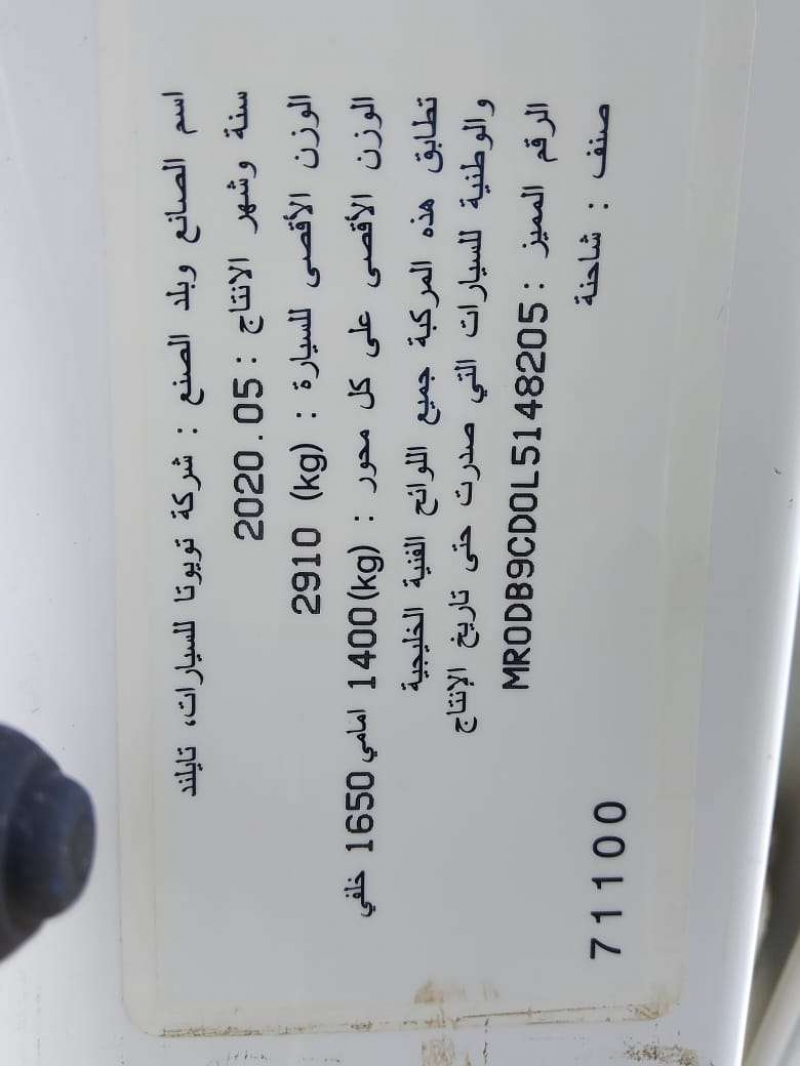 اسم الصانع وبلد الصنع : شركة تويوتا للسيارات، تايلند
سنة وشهر الانتاج : 2020.05
الوزن الأقصى للسيارة : (kg) 2910
الوزن الأقصى على كل محور : (kg) 1400 امامي 1650 خلفي
تطابق هذه المركبة جميع اللوائح الفنية الخليجية
والوطنية للسيارات التي صدرت حتى تاريخ الإنتاج
الرقم المميز : MR0DB9CD0L5148205
صنف : شاحنة
71100